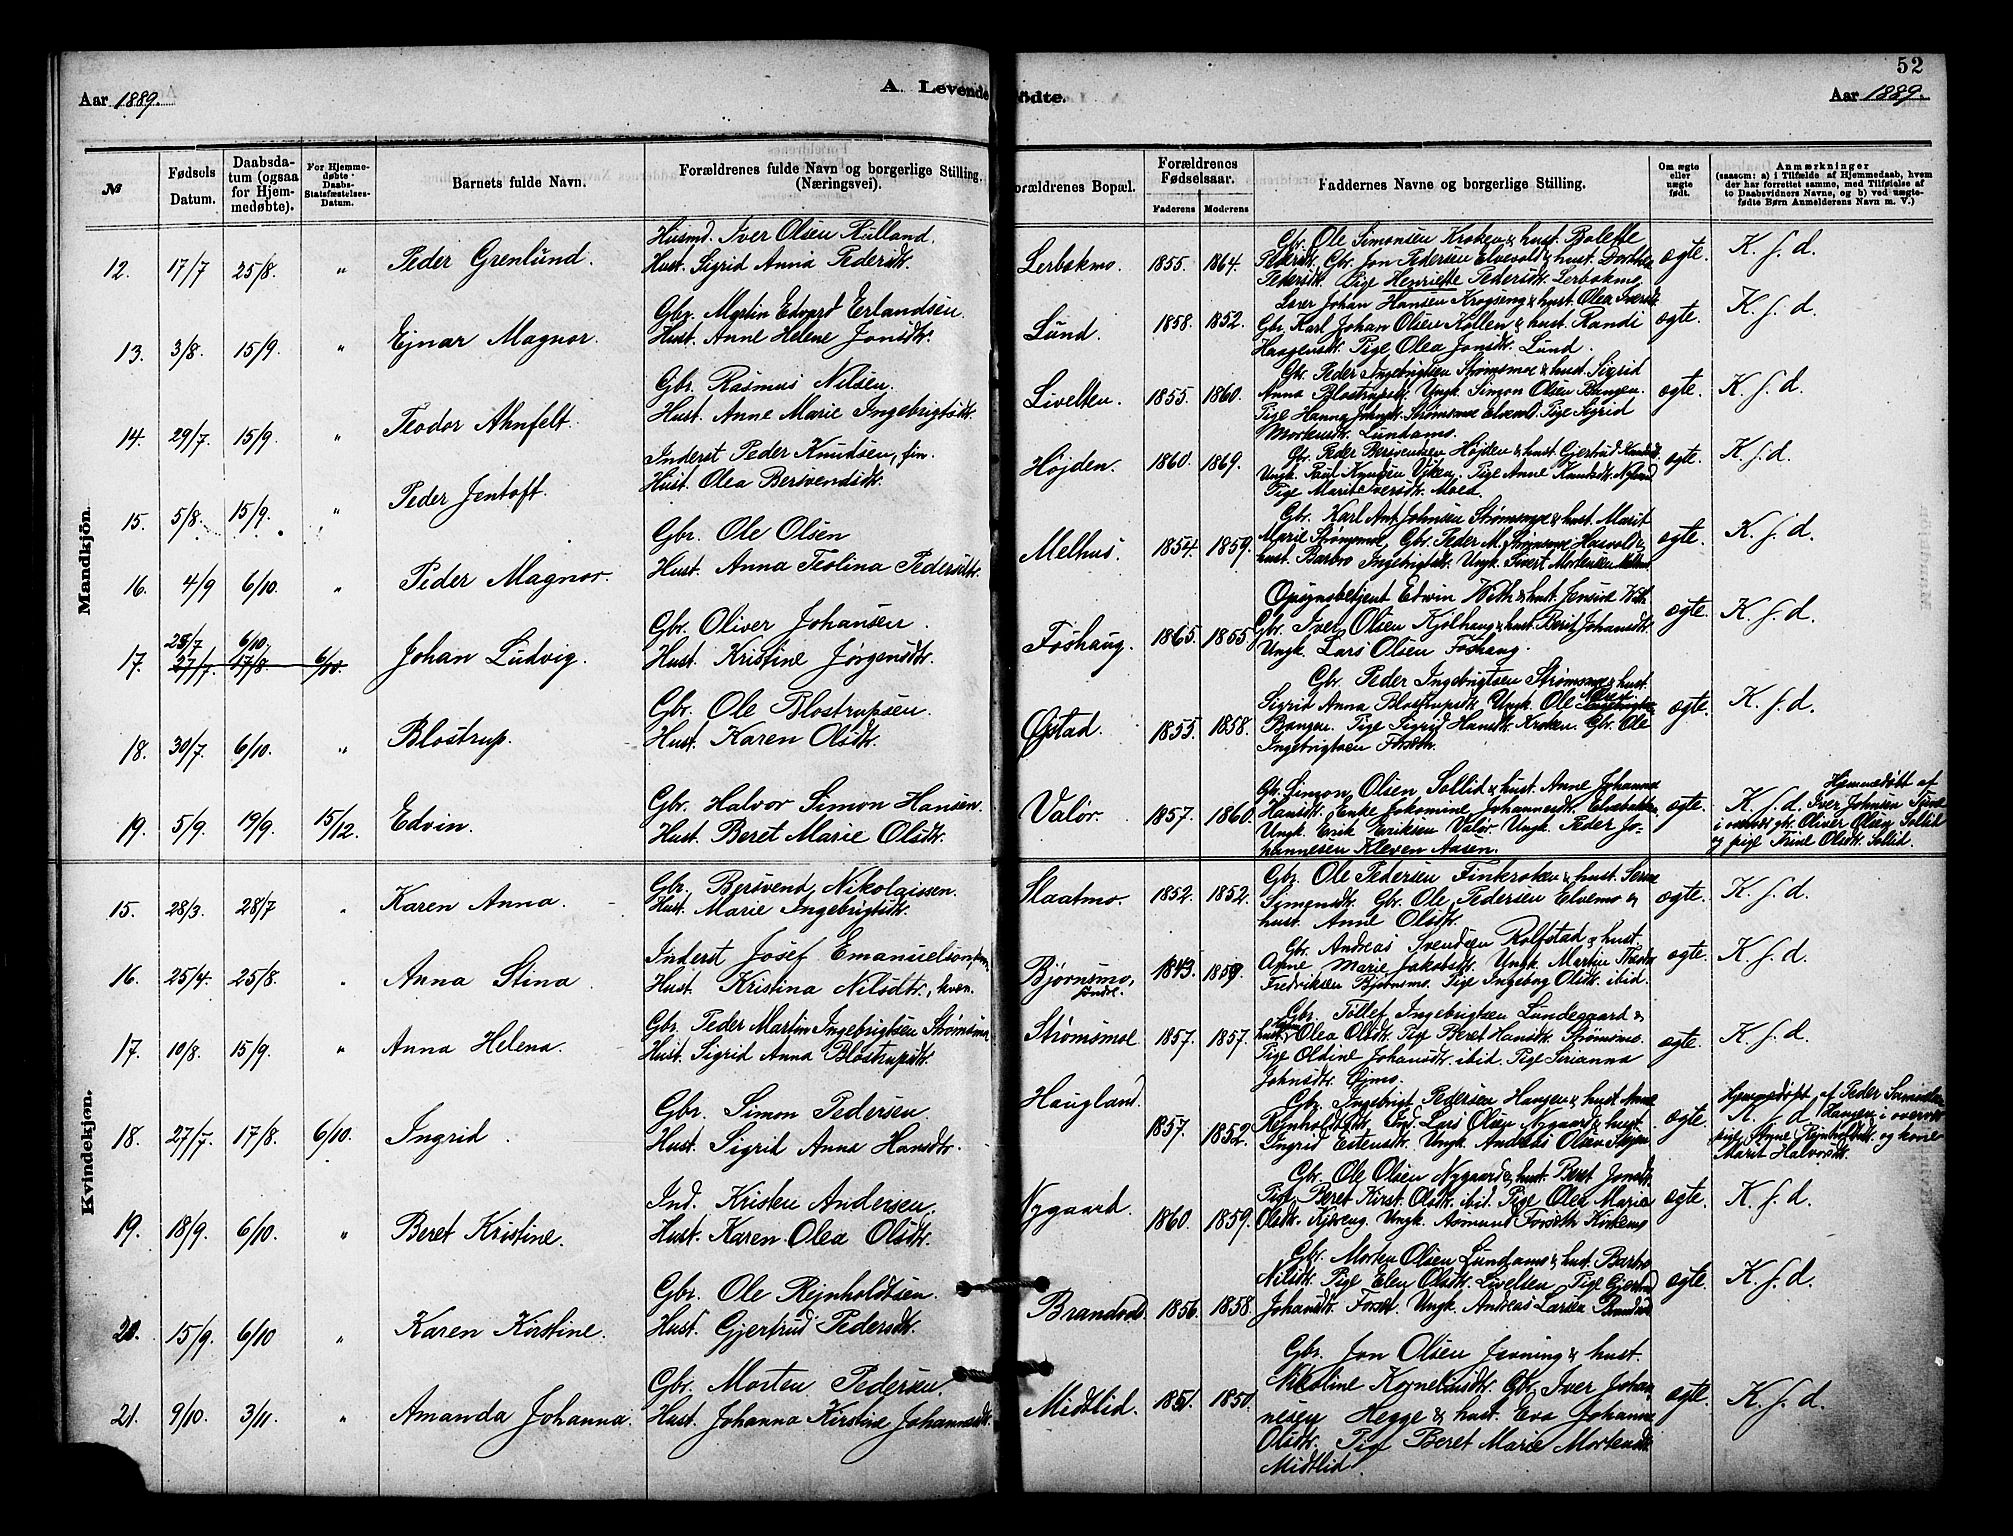 52
Aar 1889.
A. Levende
ødte.
Aar 1889.
№
Fødsels Datum.
Daabsdatum (ogsaa for Hjemmedøbte).
For Hjemmedøbte: Daabs-Stadfæstelses-Datum.
Barnets fulde Navn.
Forældrenes fulde Navn og borgerlige Stilling. (Næringsvei).
Forældrenes Bopæl.
Forældrenes Fødselsaar.
Faderens Moderens
Faddernes Navne og borgerlige Stilling.
Om ægte eller uægte født.
Anmærkninger
(saasom: a) i Tilfælde af Hjemmedaab, hvem der har forrettet samme, med Tilføielse af to Daabsvidners Navne, og b) ved uægtefødte Børn Anmelderens Navn m. V.)
Mandkjön.
12. 17/7 25/8. " Peder Grenlund.
Husmd. Iver Olsen Rulland.
Hust. Sigrid Anna Pedersdtr.
Lerbakmo. 1855. 1864.
Gbr. Ole Simonsen Kroken & hust. Bolette
Pedersdtr. Gbr. Jon Pedersen Elvevold & hust. Dorthea
Pedersdtr. Pige Henriette Pedersdtr. Lerbakmo.
ægte. K. f. d.
13. 3/8. 15/9. " Ejnar Magnor.
Gbr. Martin Edvard Erlandsen.
Hust. Anne Helene Jonsdtr.
Lund. 1858. 1852.
Lærer Johan Hansen Krogseng & hust. Olea Iversdtr.
Gbr. Karl Johan Olsen Kollen & hust. Randi
Haagensdtr. Pige Olea Jonsdtr. Lund.
ægte. K. f. d.
14. 29/7. 15/9. " Teodor Ahnfelt.
Gbr. Rasmus Nilsen.
Hust. Anne Marie Ingebrigtsdtr.
Livelten. 1855. 1860.
Gbr. Peder Ingebrigtsen Strømsmoe & hust. Sigrid
Anna Blostrupsdtr. Ungk. Simon Olsen Bangen.
Pige Hanna Johnsdtr. Strømsmoe Pige Sigrid
Mortensdtr. Lundamo.
ægte. K. f. d.
15. 5/8. 15/9. " Peder Jentoft.
Inderst Peder Knudsen, fin.
Hust. Olea Bersvendsdtr.
Højden. 1860. 1869.
Gbr. Peder Bersvendsen Højden & hust. Gjertrud Knudsdtr.
Ungk. Paul Knudsen Viken, Pige Anne Knudsdtr.
Pige Marit Iversdtr. Moen.
ægte. K. f. d.
16. 4/9 6/10. " Peder Magnor.
Gbr. Ole Olsen
Hust. Anna Teolina Pedersdtr.
Melhus. 1854. 1859.
Gbr. Karl Ant. Johnsen Strømsmoe & hust. Marit
Marie Strømsmoe, Gbr. Peder M. Strømsmoe
hust. Barbro Ingebrigtsdtr. Ungk. Sivert Mortensen
ægte. K. f. d.
17. 28/7 27/7. 6/10. 17/8. 6/10. Johan Ludvig.
Gbr. Oliver Johansen.
Hust. Kristine Jørgensdtr.
Foshaug. 1865. 1855.
Opsynsbetjent Edwin Wit & hust. Jensine Wit.
Gbr. Iver Olsen Kjølhaug & hust. Berit Johansdtr.
Ungk. Lars Olsen Foshaug.
ægte. K. f. d.
18. 30/7. 6/10. " Blostrup.
Gbr. Ole Blostrupsen.
Hust. Karen Olsdtr.
Øpstad. 1855. 1858.
Gbr. Peder Ingebrigtsen Strømsmoe & hust.
Sigrid Anna Blostrupsdtr. Ungk. Ole Nilsen
Bangen. Pige Sigrid Hansdtr. Kroken. Gbr. Ole
Ingebrigtsen Forseth.
ægte. K. f. d.
19. 5/9. 19/9. 15/12. Edvin.
Gbr. Halvor Simon Hansen.
Hust. Beret Marie Olsdtr.
Valør. 1857. 1860.
Gbr. Simon Olsen Sollid & hust. Anne Johanna
Hansdtr. Enke Jakomine Johannesdtr. Elvebakken.
Ungk. Erik Eriksen Valør. Ungk. Peder Johannesen
Kleven Aasen.
ægte. K. f. d.
Hjemmedøbt af
Iver Johnsen
i overvær gbr. Oliver Olsen Sollid
og pige Trine Olsdtr. Sollid.
Kvindekjøn.
15. 28/3. 28/7 " Karen Anna.
Gbr. Bersvend Nikolaissen.
Hust. Marie Ingebrigtsdtr.
Slaatmo. 1852. 1852.
Gbr. Ole Pedersen Finkroken & hust.
Simonsdtr. Gbr. Ole Pedersen Elvemo &
hust. Anne Olsdtr.
ægte. K. f. d.
16. 25/4. 25/8. " Anna Stina.
Inderst Josef Emanuelson,
Hust. Kristina Nilsdtr., kvæn.
Bjørnsmo, søndre. 1843. 1859.
Gbr. Andreas Svendsen Rolfstad & hust.
Anne Marie Jakobsdtr. Ungk. Martin
Fredriksen Bjørnsmo. Pige Ingeborg Olsdtr. ibid.
ægte. K. f. d.
17. 10/8. 15/9. " Anna Helena.
Gbr. Peder Martin Ingebrigtsen Strømsmo
Hust. Sigrid Anna Blostrupsdtr.
Strømsmoe 1857. 1857.
Gbr. Tollef Ingebrigtsen Lundegaard &
hust. Olea Olsdtr. Pige Beret Hansdtr. Strømsmo.
Pige Oldine Johansdtr. ibid. Pige Serianna
Johnsdtr. Øjmo.
ægte. K. f. d.
18. 27/7. 17/8. 6/10. Ingrid.
Gbr. Simon Pedersen.
Hust. Sigrid Anna Hansdtr.
Haugland. 1857. 1852.
Gbr. Ingebrigt Pedersen Haugen & hust. Anne
Rejnholdtsdtr. Ind. Lars Olsen Nygaard & hust.
Ingrid Estensdtr. Ungk. Andreas Olsen
ægte. K. f. d.
Hjemmedøbt af Peder
Haugen i overvær
pige Anne Rejnholdtsdtr. og kone
Marit Halvorsdtr.
19. 18/9. 6/10. " Beret Kristine.
Ind. Kristen Andersen.
Hust. Karen Olea Olsdtr.
Nygaard. 1860. 1859.
Gbr. Ole Olsen Nygaard & hust. Beret Jonsdtr.
Pige Beret Kirst. Olsdtr. ibid. Pige Olea Marie
Olsdtr. Kjæreng. Ungk. Asmund Forseth Kirkemo.
ægte. K. f. d.
20. 15/9. 6/10 " Karen Kirstine.
Gbr. Ole Rejnholdtsen.
Hust. Gjertrud Pedersdtr.
Brandvold 1856. 1858.
Gbr. Morten Olsen Lundamo & hust. Barbro
Nilsdtr. Pige Elen Olsdtr. Livelten, Pige Gjertrud
Johansdtr. Forset. Ungk. Andreas Larsen Brandvold
ægte. K. f. d.
21. 9/10. 3/11. " Amanda Johanna.
Gbr. Morten Pedersen.
Hust. Johanna Kirstine Johannesdtr.
Midtlid. 1851. 1850.
Gbr. Jon Olsen Jevning & hust.
Nikoline Korneliusdtr. Gbr. Iver Johannesen
Hegge & hust. Eva Johanna
Olsdtr. Pige Beret Marie Mortensdtr.
Midtlid.
ægte. K. f. d.